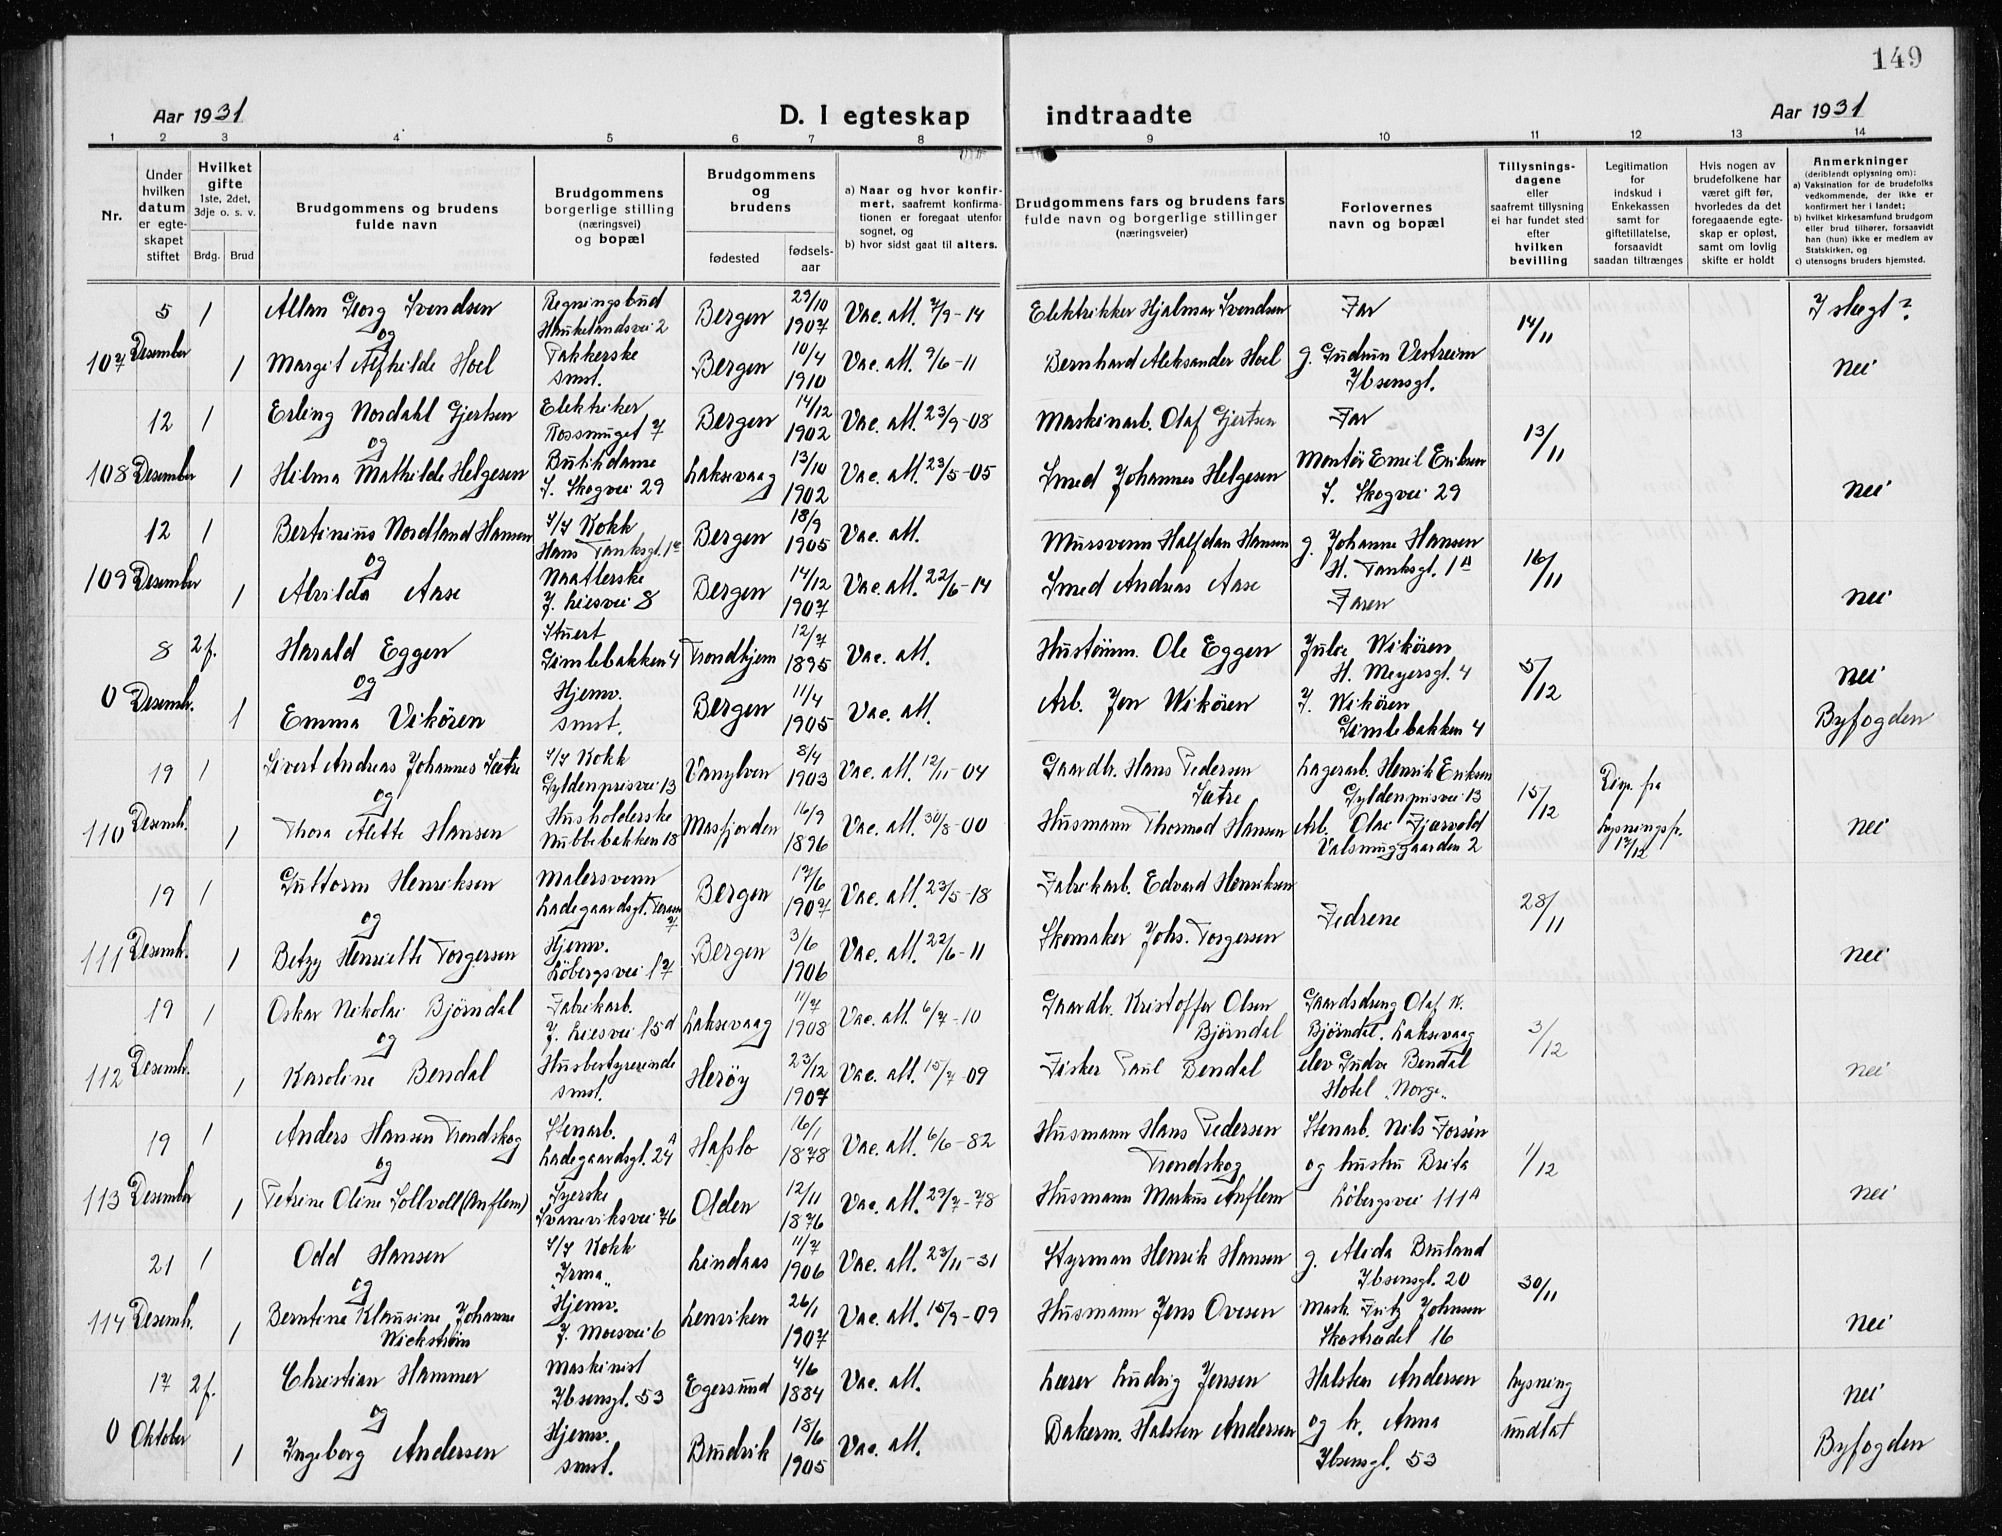 149
Aar 1931 D. I egteskap indtraadte Aar 1931
1 2 3 4 5 6 7 8 9 10 11 12 13 14
Nr.
Under hvilken datum er egteskapet stiftet
Hvilket gifte 1ste, 2det, 3dje o. s. v.
Brdg. Brud
Brudgommens og brudens fulde navn
Brudgommens borgerlige stilling (næringsvei) og bopæl
Brudgommens og brudens
fødested fødsels-aar
a) Naar og hvor konfirmert, saafremt konfirmationen er foregaat utenfor sognet, og
b) hvor sidst gaat til alters.
Brudgommens fars og brudens fars fulde navn og borgerlige stillinger (næringsveier)
Forlovernes navn og bopæl
Tillysningsdagene eller saafremt tillysning ei har fundet sted efter hvilken bevilling
Legitimation for indskud i Enkekassen samt for giftetillatelse, forsaavidt saadan tiltrænges
Hvis nogen av brudefolkene har været gift før, hvorledes da det foregaaende egteskap er opløst, samt om lovlig skifte er holdt
Anmerkninger (deriblandt oplysning om):
a) Vaksination for de brudefolks vedkommende, der ikke er konfirmert her i landet;
b) hvilket kirkesamfund brudgom eller brud tilhører, forsaavidt han (hun) ikke er medlem av Statskirken, og
c) utensogns bruders hjemsted.
5 1 Allan Georg Svendsen Regningsbud Haukelandsvei 2 Bergen 29/10 1907 Vac. att. 7/9-14 Elektrikker Hjalmar Svendsen Far 14/11 I slegt?
og
107 Desember 1 Margit Alfhilde Hoel Pakkerske smst. Bergen 10/4 1910 Vac. att. 9/6-11 Bernhard Aleksander Hoel g. Gudrun Vestreim Ibsensgt. Nei
12 1 Erling Nordahl Gjertsen Elektriker Rossmuget 7 Bergen 14/12 1902 Vac. att. 23/9-08 Maskinarb. Olaf Gjertsen Far 13/11
og
108 Desember 1 Hilma Mathilde Helgesen Butikdame S. Skogvei 29 Laksevaag 13/10 1902 Vac. att. 23/5-05 Smed Johannes Helgesen Montör Emil Eriksen S. Skogvei 29 Nei
12 1 Bertinius Nordland Hansen S/S Kokk Hans Tanksgt. 1 Bergen 18/9 1905 Vac. att. Mursvenn Halfdan Hansen g. Johanne Hansen H. Tanksgt. 1A 16/11
og
109 Desember 1 Alvilda Aase Naatlerske J. Liesvei 8 Bergen 14/12 1907 Vac. att. 22/6-14 Smed Andreas Aase Faren Nei
8 2f. Harald Eggen Stuert Gimlebakken 4 Trondhjem 12/7 1895 Vac. att. Hustömm. Ole Eggen Wikören H. Meyersgt. 4 5/12 Nei
og
0 Desemb. 1 Emma Vikören Hjemv. smst. Bergen 11/4 1905 Vac. att. Arb. Jon Wikören J. Wikören Gimlebakken 4 Byfogden
19 1 Sivert Andreas Johannes Sætre S/S Kokk Gyldenprisvei 13 Vanylven 8/4 1903 Vac. att. 12/11-04 Gaardbr. Hans Pedersen Sætre Lagerarb. Henrik Eriksen Gyldenprisvei 13 15/12 Disp. fra
og
110 Desemb. 1 Thora Alette Hansen Husholderske Nubbebakken 18 Masfjorden 16/9 1896 Vac. att. 30/8-00 Husmann Thormod Hansen Arb. Olai Fjærvold Valsmuggaarden 2 lysningsfr. 17/12 Nei
19 1 Guttorm Henriksen Malersvenn Ladegaardsgt. Bergen 17/6 1907 Vac. att. 23/5-18 Fabrikarb. Edvard Henriksen Fedrene 28/11
og
111 Desemb. 1 Betzy Henriette Torgersen Hjemv. Löbergsvei 17 Bergen 3/6 1906 Vac. att. 22/6-11 Skomaker Johs. Torgersen Nei
19 1 Oskar Nikolai Björndal Fabrikarb. J. Liesvei 15d Laksevaag 11/7 1908 Vac. att. 6/7-10 Gaardbr. Kristoffer Olsen Björndal Gaardsdreng Olaf K. Björndal, Laksevaag 3/12
og
112 Desemb. 1 Karoline Bendal Husbestyrerinde smst. Heröy 23/12 1907 Vac. att. 15/7-09 Fisker Paul Bendal elev Gudve Bendal Hotel "Norge" Nei
19 1 Anders Hansen Trondskog Stenarb. Ladegaardsgt. 24A Hafslo 16/1 1878 Vac. att. 6/6-82 Husmann Hans Pedersen Trondskog Stenarb. Nils Forsin og hustru Brita 1/12
og
113 Desember 1 Petrine Oline Sollvoll (Anflem) Syerske Svaneviksvei 76 Olden 12/11 1876 Vac. att. 29/7-78 Husmann Markus Anflem Löbergsvei 111A Nei
21 1 Odd Hansen S/S Kokk "Irma" Lindaas 11/7 1906 Vac. att. 23/11-31 Styrman Henrik Hansen g. Alida Bruland Ibsensgt. 20 30/11
og
114 Desemb. 1 Berntine Klausine Johanne Wickström Hjemv. J. Moesvei 6 Lenviken 26/1 1907 Vac. att. 15/9-09 Husmann Jens Ovesen Mask. Fritz Johnsen Skostrædet 16 Nei
17 2f. Christian Hammer Maskinist Ibsensgt. 53 Egersund 4/6 1884 Vac. att. Lærer Ludvig Jensen Halsten Andersen Lysning Nei
og
0 Oktober 1 Ingeborg Andersen Hjemv. smst. Brudvik 18/6 1905 Vac. att. Bakerm. Halsten Andersen og h. Anna Ibsensgt. 53 undlat Byfogden